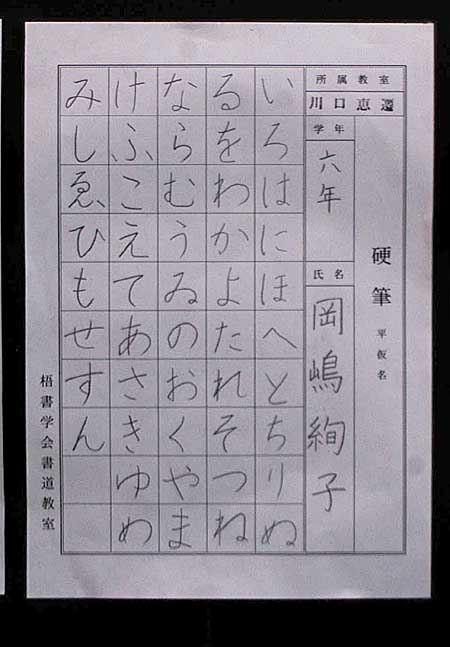 所属教室
川口恵遷
学年
六年
氏名
岡嶋絢子
硬筆 平仮名
いろはにほへとちりぬ
るをわかよたれそつね
ならむうゐのおくやま
けふこえてあさきゆめ
みしゑひもせすん
梧書学会書道教室